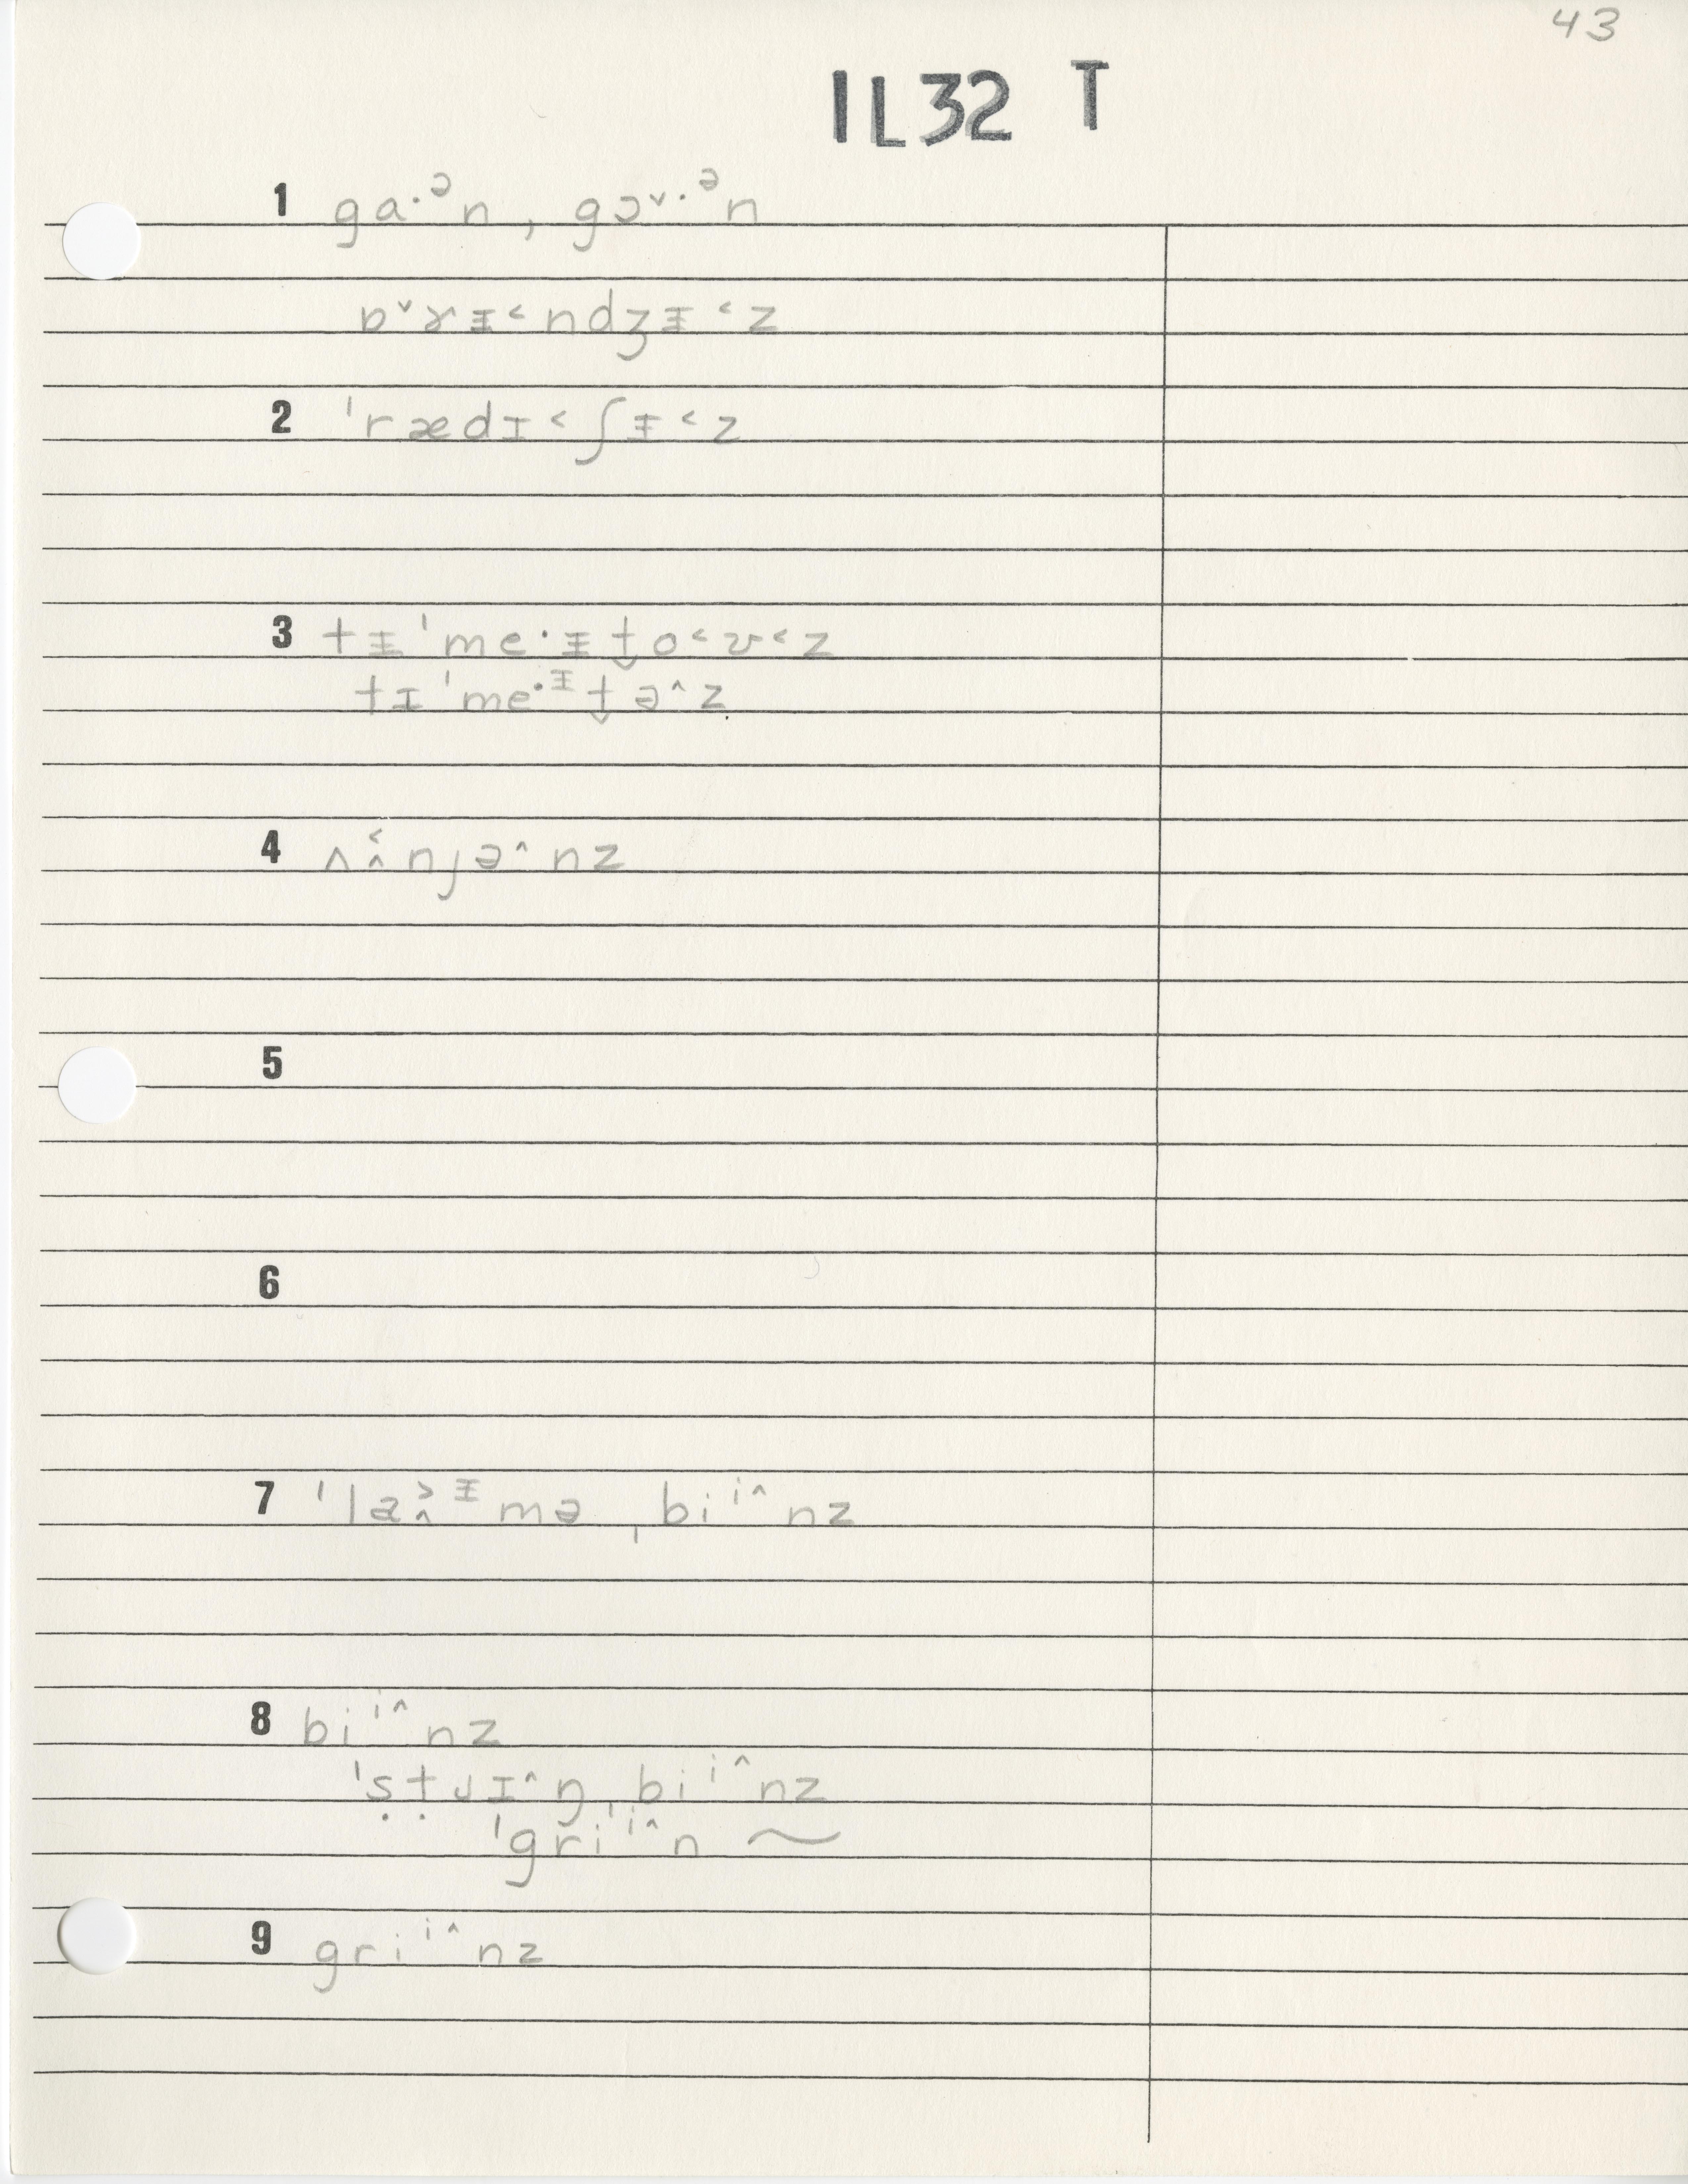 43
IL32 T
1 ga·ᵊn, gɔ˅·ᵊn
ɒ˅ɤᵻ˂ndʒᵻ˂z
2 ˈrædɪ˂ʃᵻ˂z
3 tᵻˈme·ᵻt̬o˂ʊ˂z
tɪˈme·ᵻt̬ə˄z
4 ʌ˂˄njə˄nz
5
6
7 ˈla˃˄ᵻmə ˌbiⁱ˄nz
8 biⁱ˄nz
ˈṣṭɹɪ˄ŋ ˌbiⁱ˄nz
ˈgriⁱ˄n ⁓
9 griⁱ˄nz